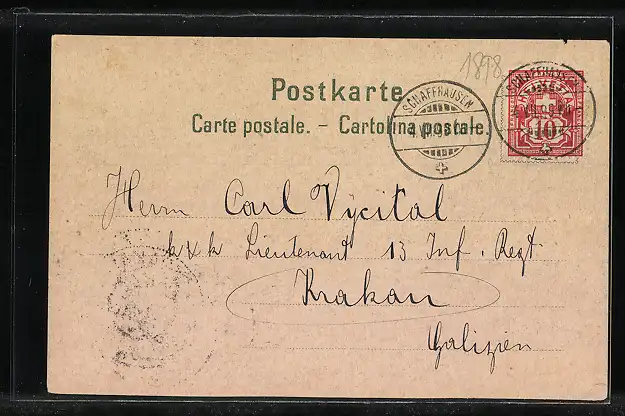 1898
Postkarte
Carte postale. – Cartolina postale.
SCHAFFHAUSEN
10
Herrn Carl Vycital
k & k Lieutenant 13 Inf. Regt
Krakau
Galizien